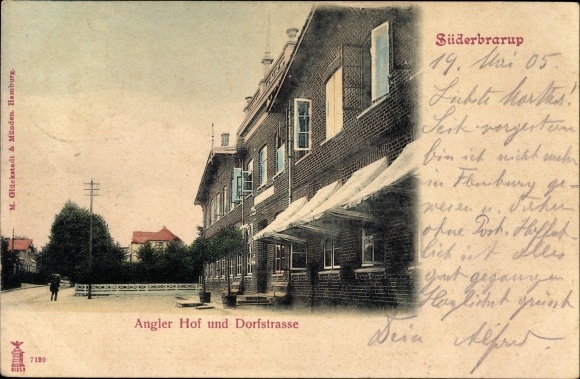 Süderbrarup
19. Mai 05.
Liebste Martha!
Seit vorgestern
bin ich nicht mehr
in Flensburg ge-
wesen u. daher
ohne Post. Hoffent-
lich ist alles
gut gegangen
Herzlichst grüsst
Dein Alfred.
M. Glückstadt & Münden, Hamburg.
Angler Hof und Dorfstrasse
7120